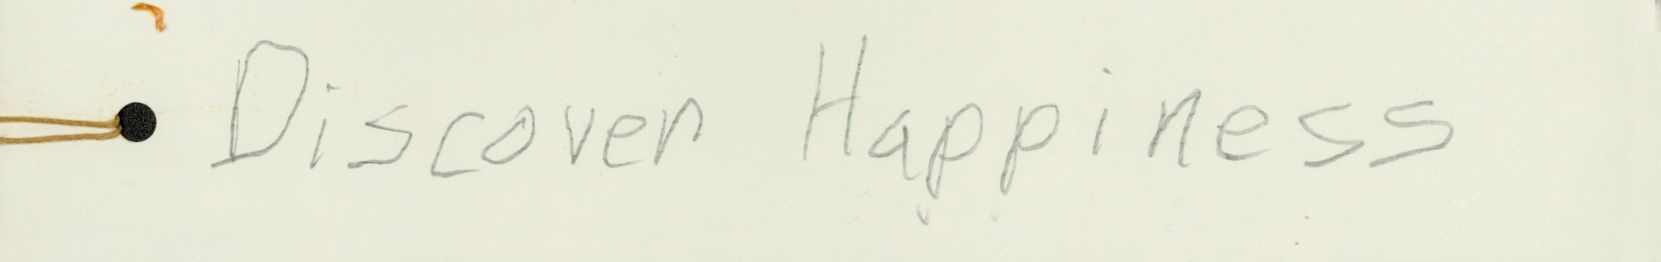 Discover Happiness